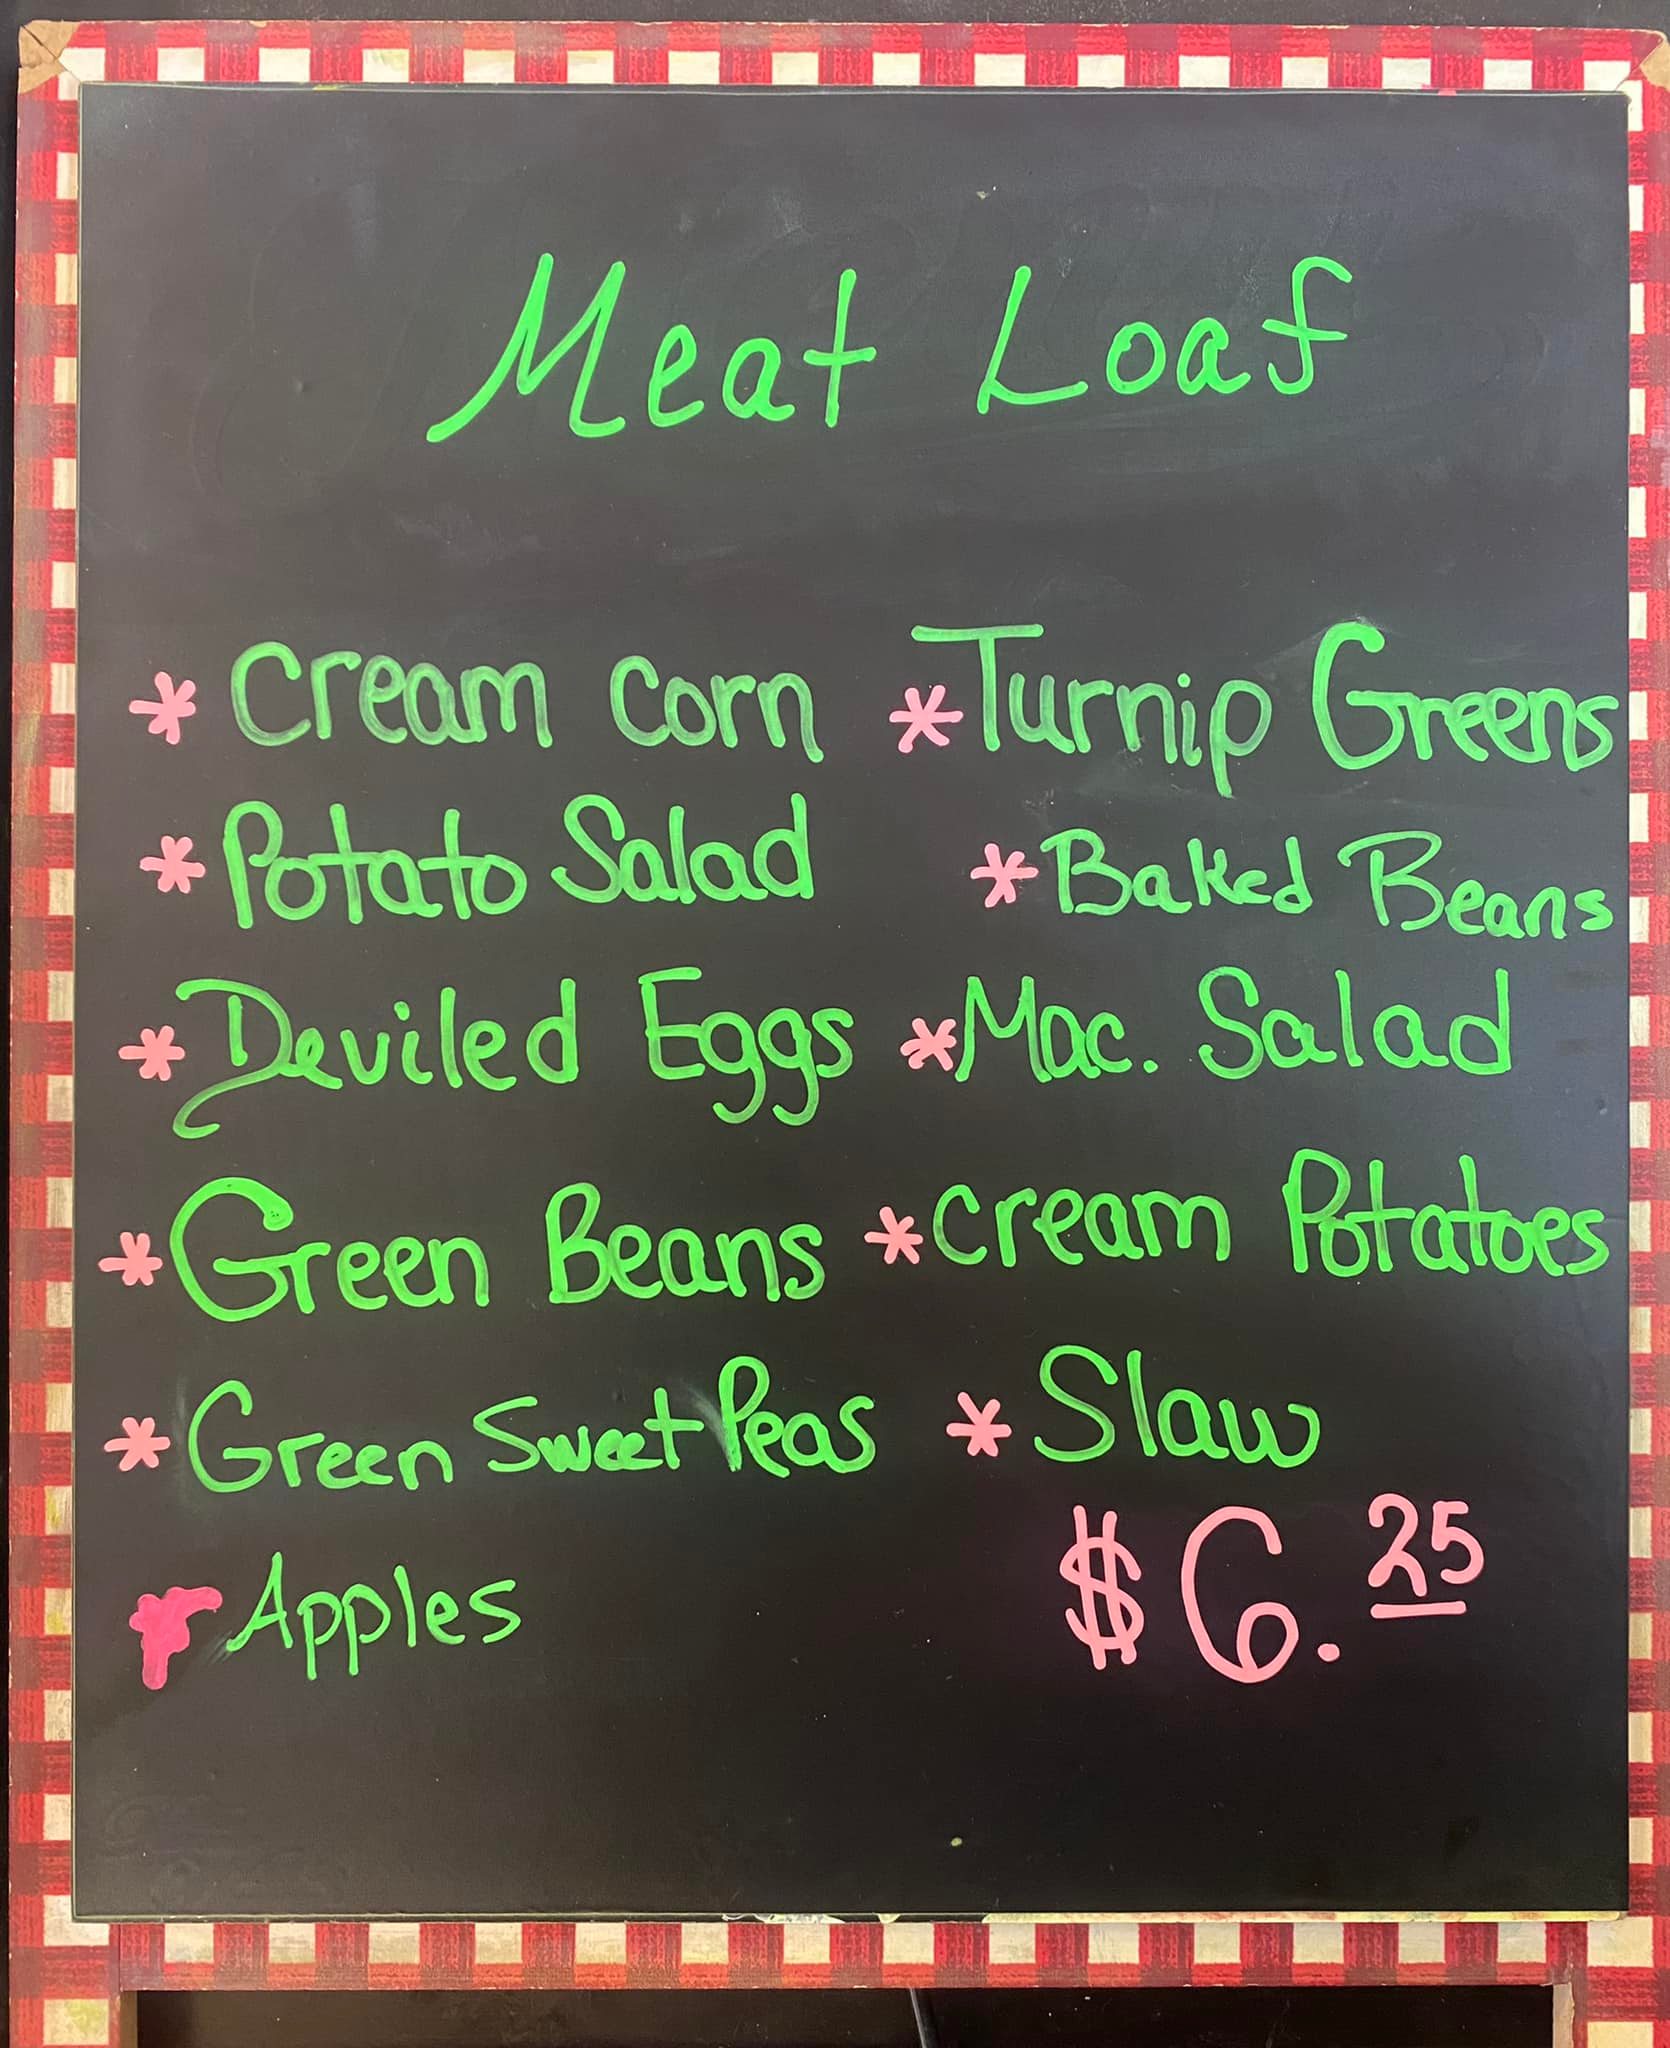 Meat Loaf
* Cream Corn
* Turnip Greens
* Potato Salad
* Baked Beans
* Deviled Eggs
* Mac. Salad
* Green Beans
* Cream Potatoes
* Green Sweet Peas
* Slaw
* Apples
$6.25